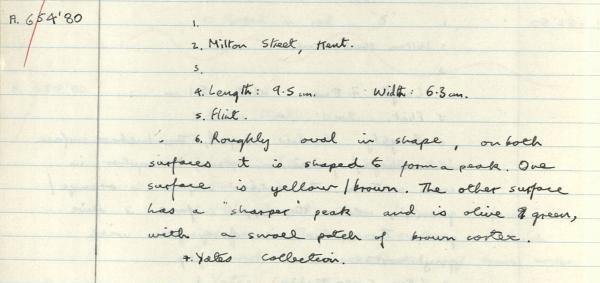 A. 654'80
1.
2. Milton Street, Kent.
3.
4. Length: 9.5 cm. Width: 6.3 cm.
5. Flint.
6. Roughly oval in shape, on both
surfaces it is shaped to form a peak. One
surface is yellow/brown. The other surface
has a "sharper" peak and is olive green,
with a small patch of brown cortex.
7. Yates collection.